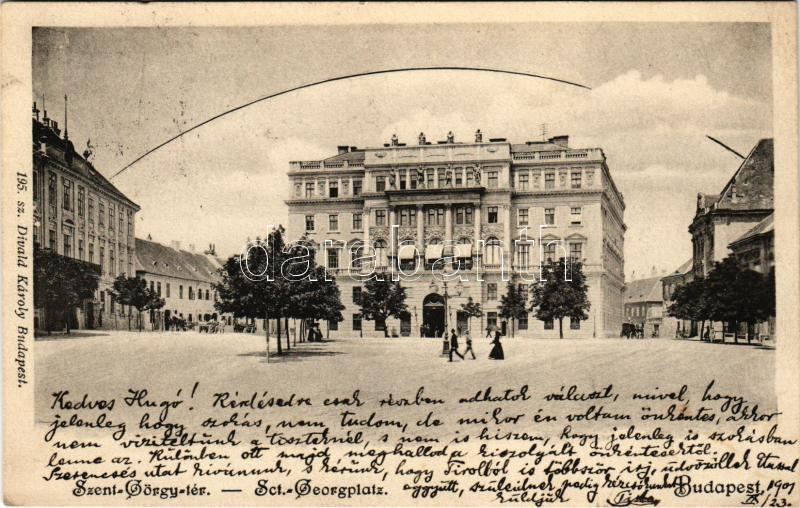 195. sz. Divald Károly Budapest.
darabanth
Kedves Hugó! Kérdésedre csak részben adhatok választ, mivel, hogy
jelenleg hogy szokás, nem tudom, de mikor én voltam önkéntes, akkor
nem viziteltünk a tiszteknél, s nem is hiszem, hogy jelenleg is szokásban
lenne az. Különben ott majd meghallod a kiszolgált önkéntesektől.
Szerencsés utat kívánunk, s kérünk, hogy Tirolból is többször írj, üdvözöllek
együtt, szüleidnek pedig
küldjük
Szent-György-tér. — Sct.-Georgplatz. Budapest, 1901
IX/23.